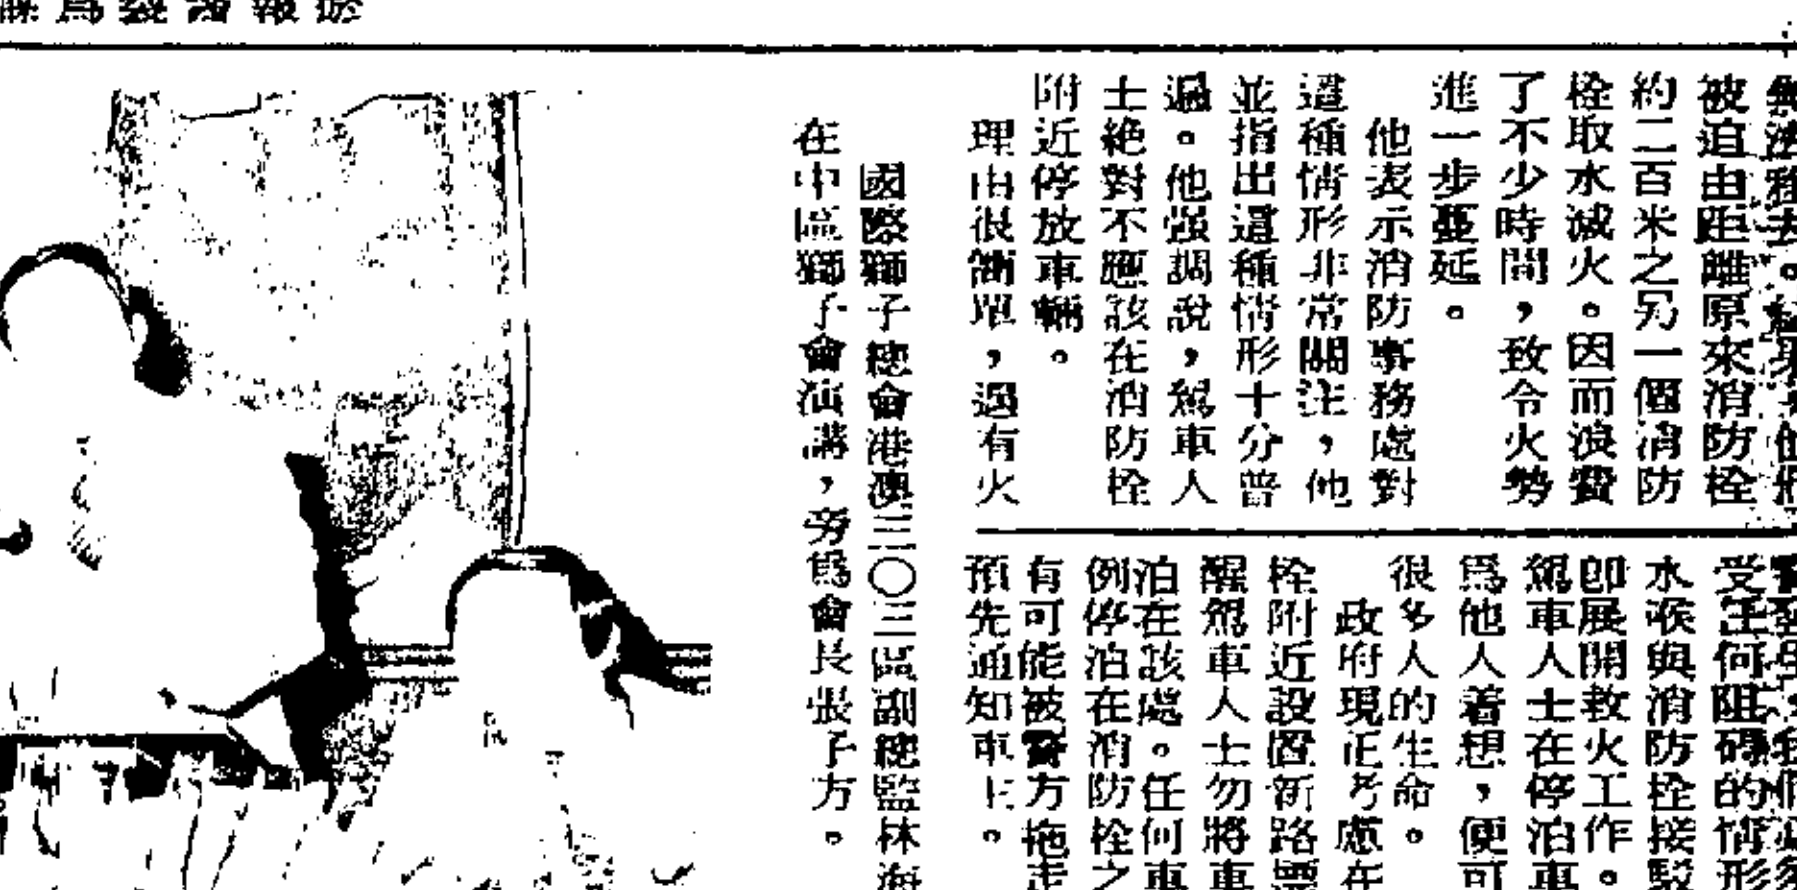 被迫由距離原來消防栓
約二百米之另一個消防
栓取水滅火。因而浪費
了不少時間，致令火勢
進一步蔓延。
他表示消防事務處對
這種情形非常關注，他
並指出這種情形十分普
遍。他强調說，駕車人
士絶對不應該在消防栓
附近停放車輛。
理由很簡單，遇有火
受任何阻碍的情形
水喉與消防栓接駁
即展開救火工作。
駕車人士在停泊車
爲他人着想，便可
很多人的生命。
政府現正考慮在
栓附近設置新路標
醒駕車人士勿將車
泊在該處。任何車
例停泊在消防栓之
有可能被警方拖走
預先通知車主。
國際獅子總會港澳三〇三區副總監林海
在中區獅子會演講，旁爲會長張子方。